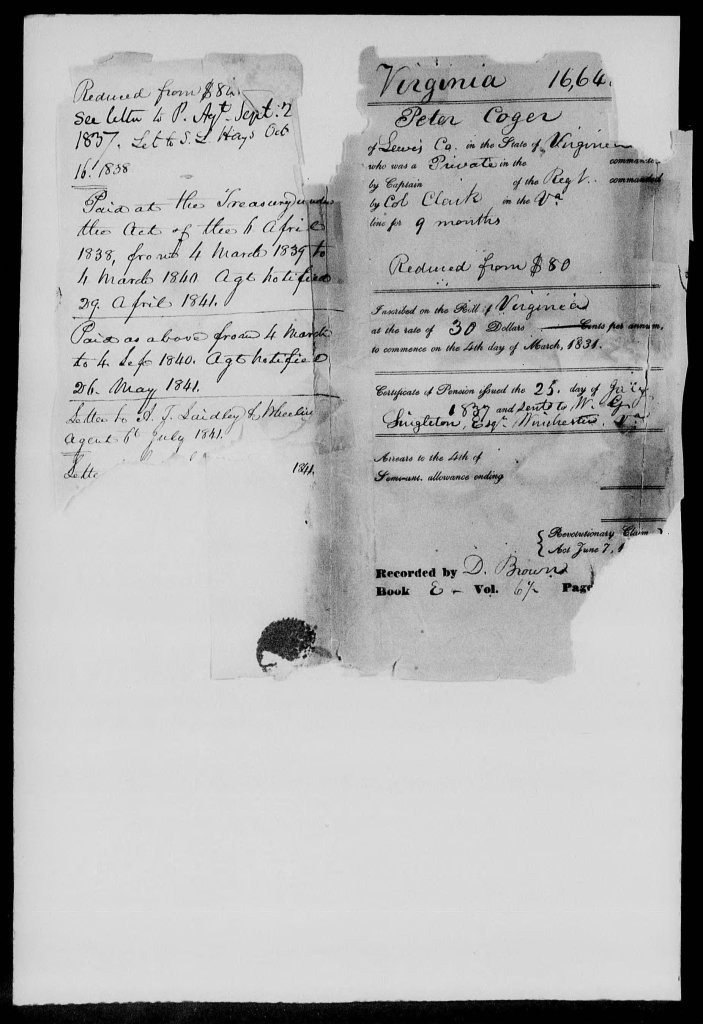 Reduced from $80.
See letter to P. Agt. Sept. 2
1837. Let to S. L. Hays Oct
16th 1838
Paid at the Treasury under
the Act of the 6 April
1838, from 4 March 1839 to
4 March 1840 Agt notified
29. April 1841.
Paid as above from 4 March
to 4 Sep 1840. Agt notified
26. May 1841.
Letter to A. J. Wheeling
Agent 6th July 1841.
Lette 1841.
Virginia 16,64
Peter Coger
of Lewis Co. in the State of Virginia
who was a Private in the command
by Captain of the Regt. commanded
by Col Clark in the Va
line for 9 months
Reduced from $80
Inscribed on the Roll of Virginia
at the rate of 30 Dollars Cents per annum,
to commence on the 4th day of March, 1831.
Certificate of Pension issued the 25. day of July
1837 and sent to W. G.
Singleton, Esqr. Winchester, Va
Arrears to the 4th of
Semi-an. allowance ending
{Revolutionary Claim
{Act June 7,
Recorded by D. Brown
Book E Vol. 6½ Page